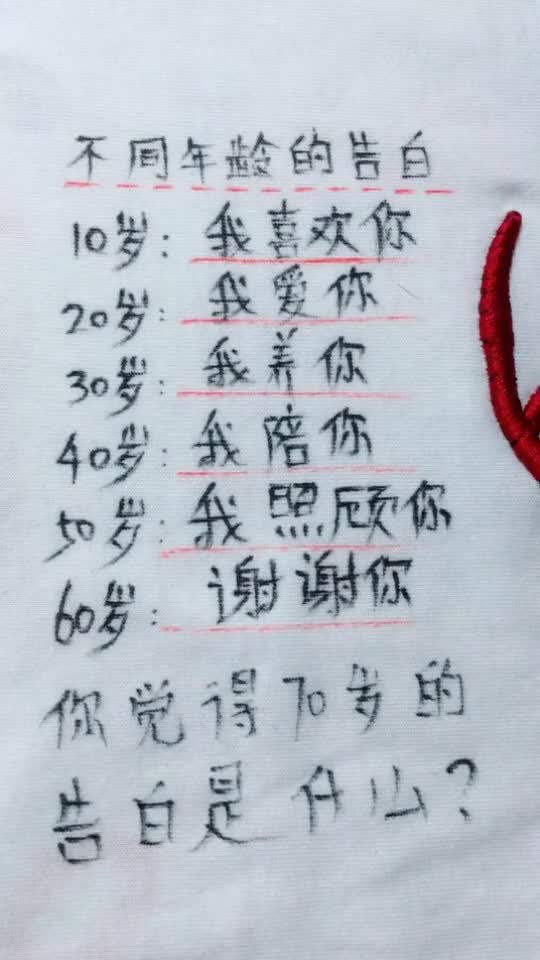 不同年龄的告白
10岁：我喜欢你
20岁：我爱你
30岁：我养你
40岁：我陪你
50岁：我照顾你
60岁：谢谢你
你觉得70岁的
告白是什么？